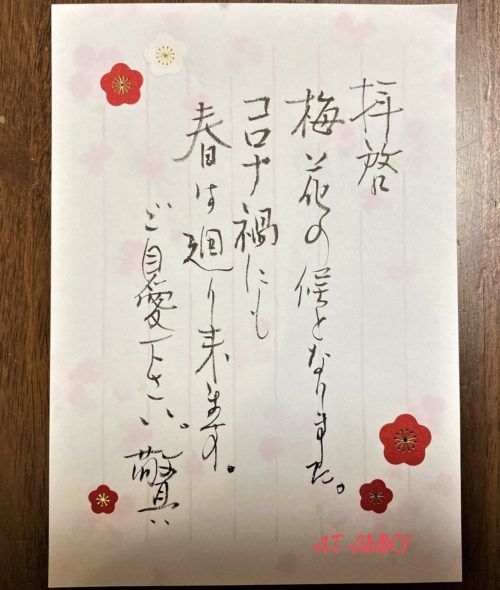 拝啓
梅花の候となりました。
コロナ禍にも
春は廻り来ます。
ご自愛下さい。
4T-AMKY